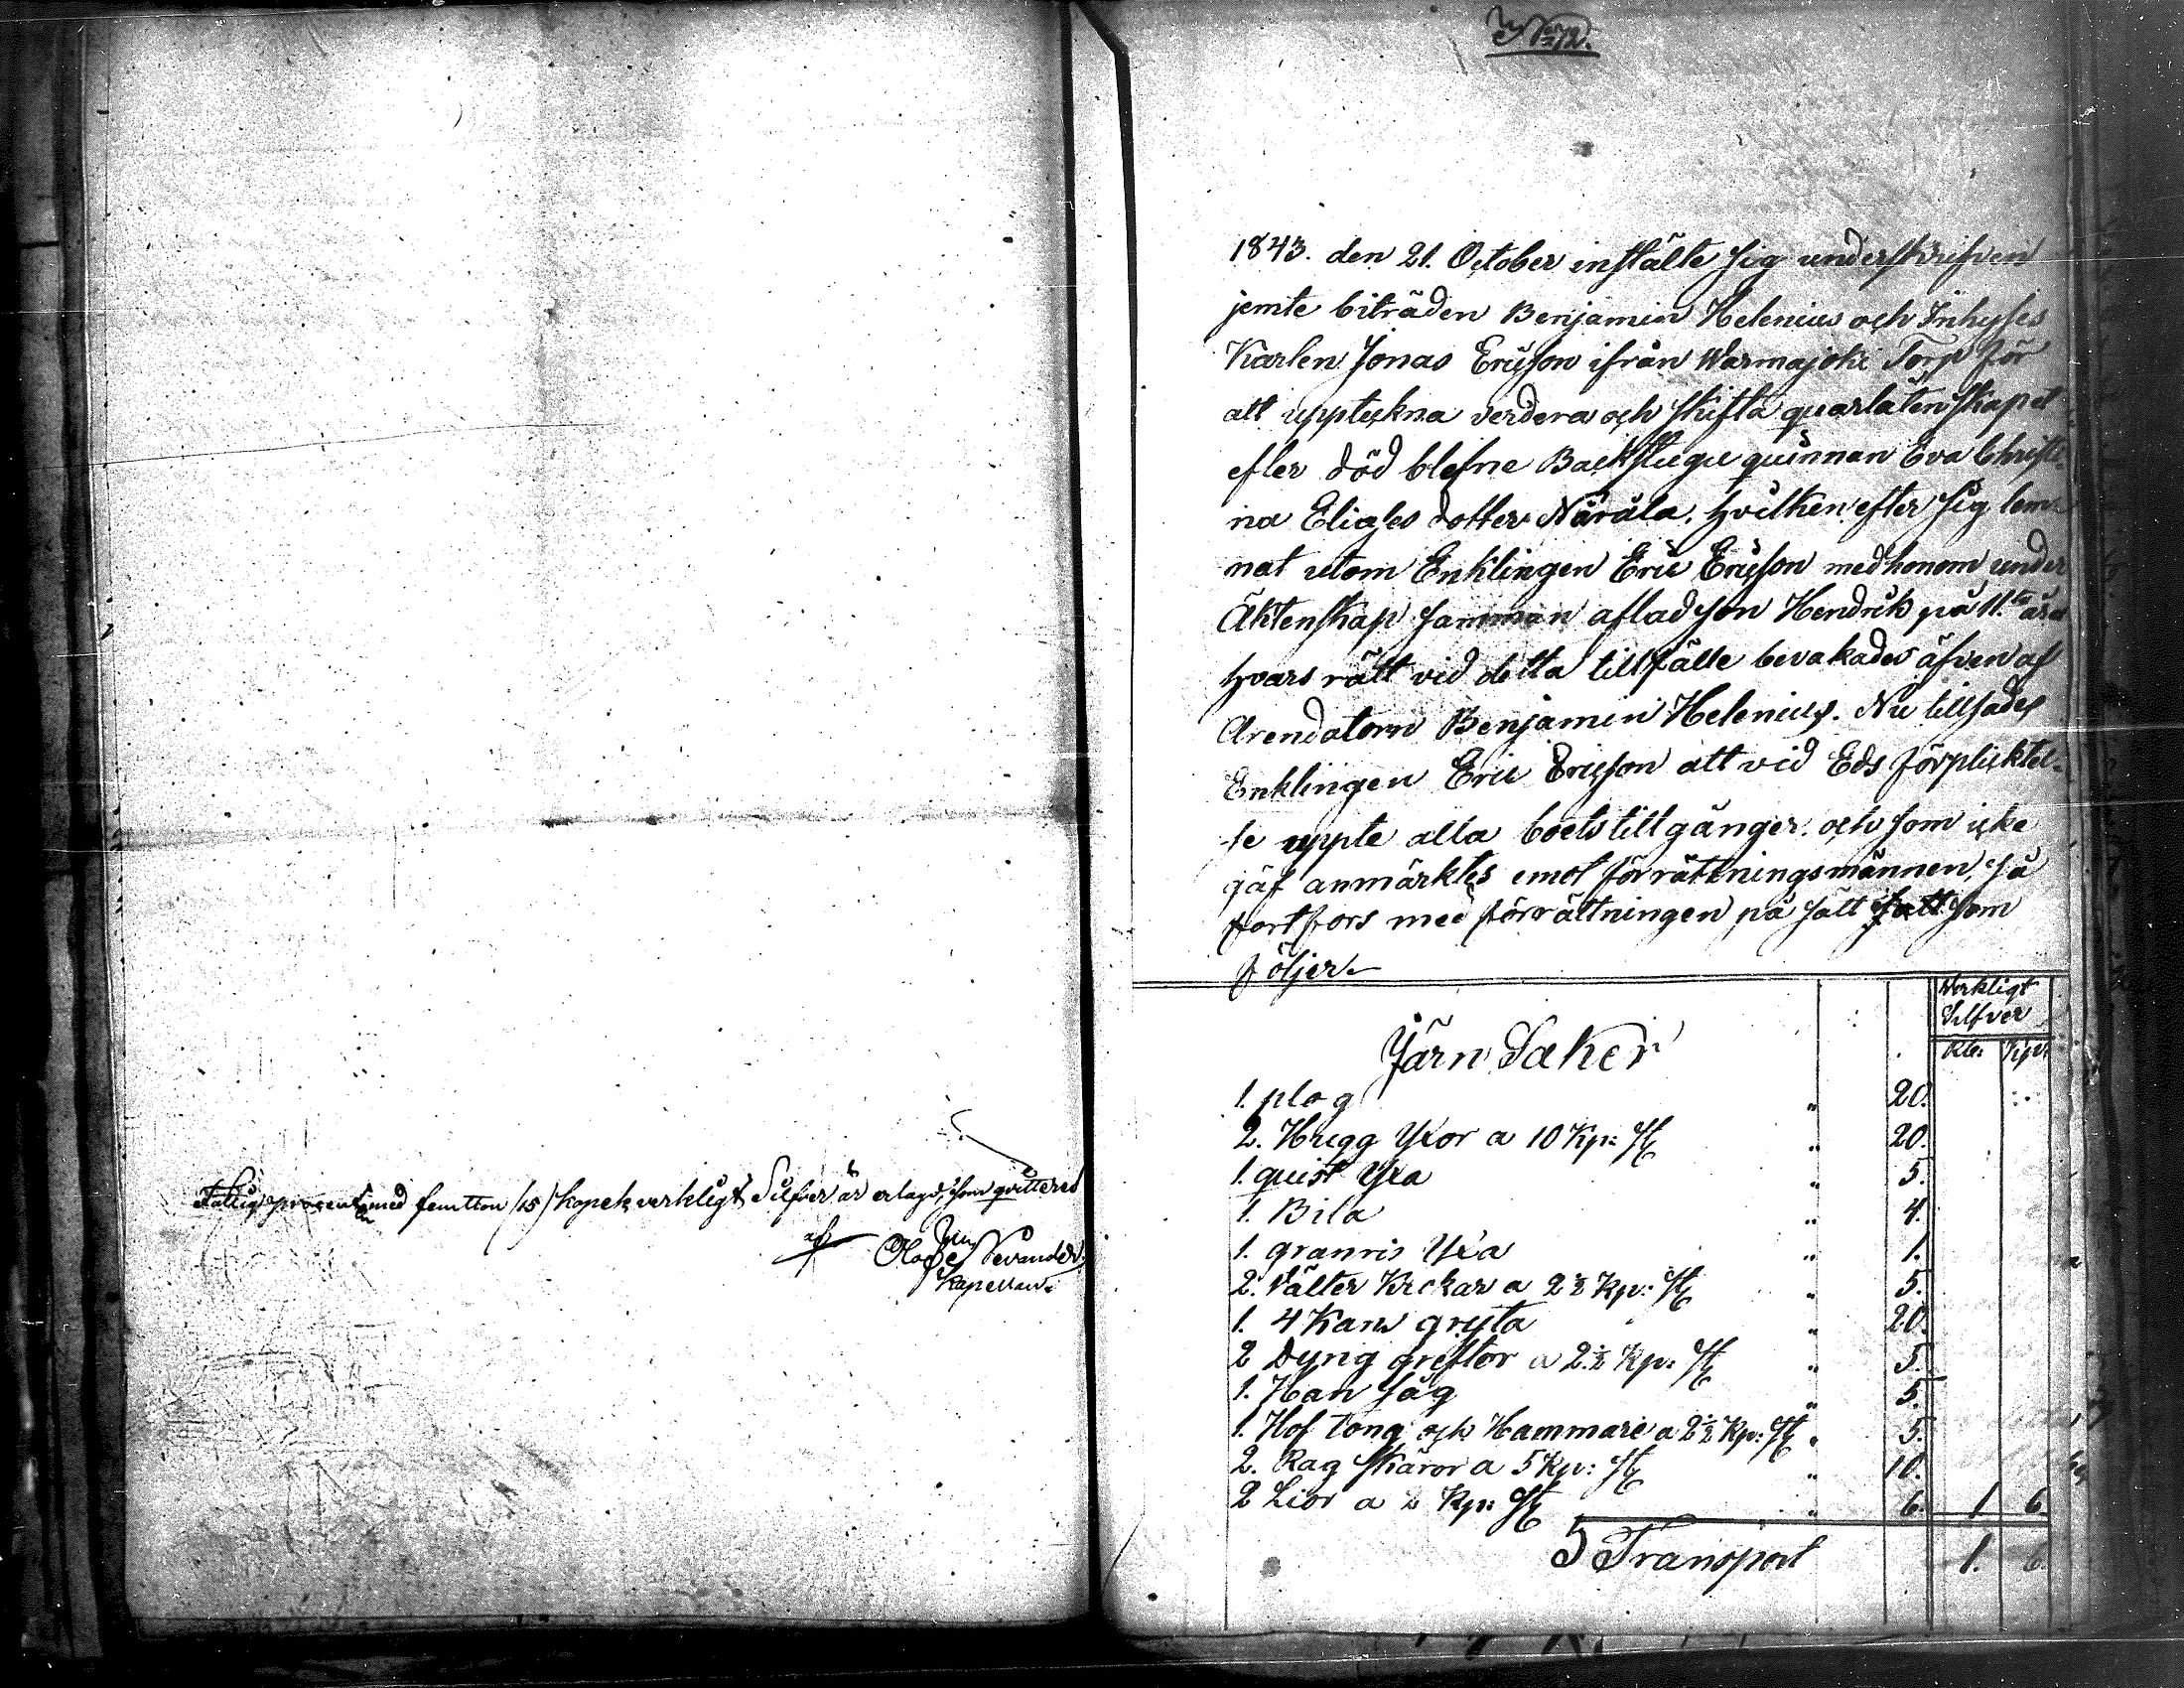 Fattig procent med femtton /15/ kopek verkligt Silfver är erlagd, som qvitteras
af Olof Nevander
Kapellan.
1843. den 21. October instälte sig underskrifven
jemte biträden Benjamin Helenius och Inhyses
Karlen Jonas Ericsson ifrån Warmajoki Torp för
att upptekna verdera och skifta quarlåtenskapet
efter död blefne Backstugu quinnan Eva Christi
na Eliases dotter Närälä. Hvilken efter sig lem-
nat utom Enklingen Eric Ericsson med honom under
Äktenskap samman aflad son Hendrik på 11.te året
hvars rätt vid detta tillfälle bevakades äfven af
Arendatorn Benjamin Helenius. Nu tillsades
Enklingen Eric Ericsson att vid Eds förplicktel-
se uppte alla boets tillgånger. och som icke
gäf anmärktes emot förrättningsmännen, så
fortfors med förrättningen på sätt som
följer.
Werkligt
Silfver
Rbl: Kop:
Järn Saker
1. plog " 20.
2. Hugg Yxor a 10 Kp: St " 20.
1. quist Yxa " 5.
1. Bila " 4.
1. granris Yxa " 1.
2. Välter Krokar a 2½ Kp: St " 5.
1. 4 Kans gryta " 20.
2 Dyng grefter a 2½ Kp: St " 5.
1. Han såg " 5.
1. Hof tong och Hammare a 2½ Kp: St " 5.
2. Rag skäror a 5 Kp: St " 10.
2 Lior a Kp: St " 6. 1 6.
Transport 1. 6.